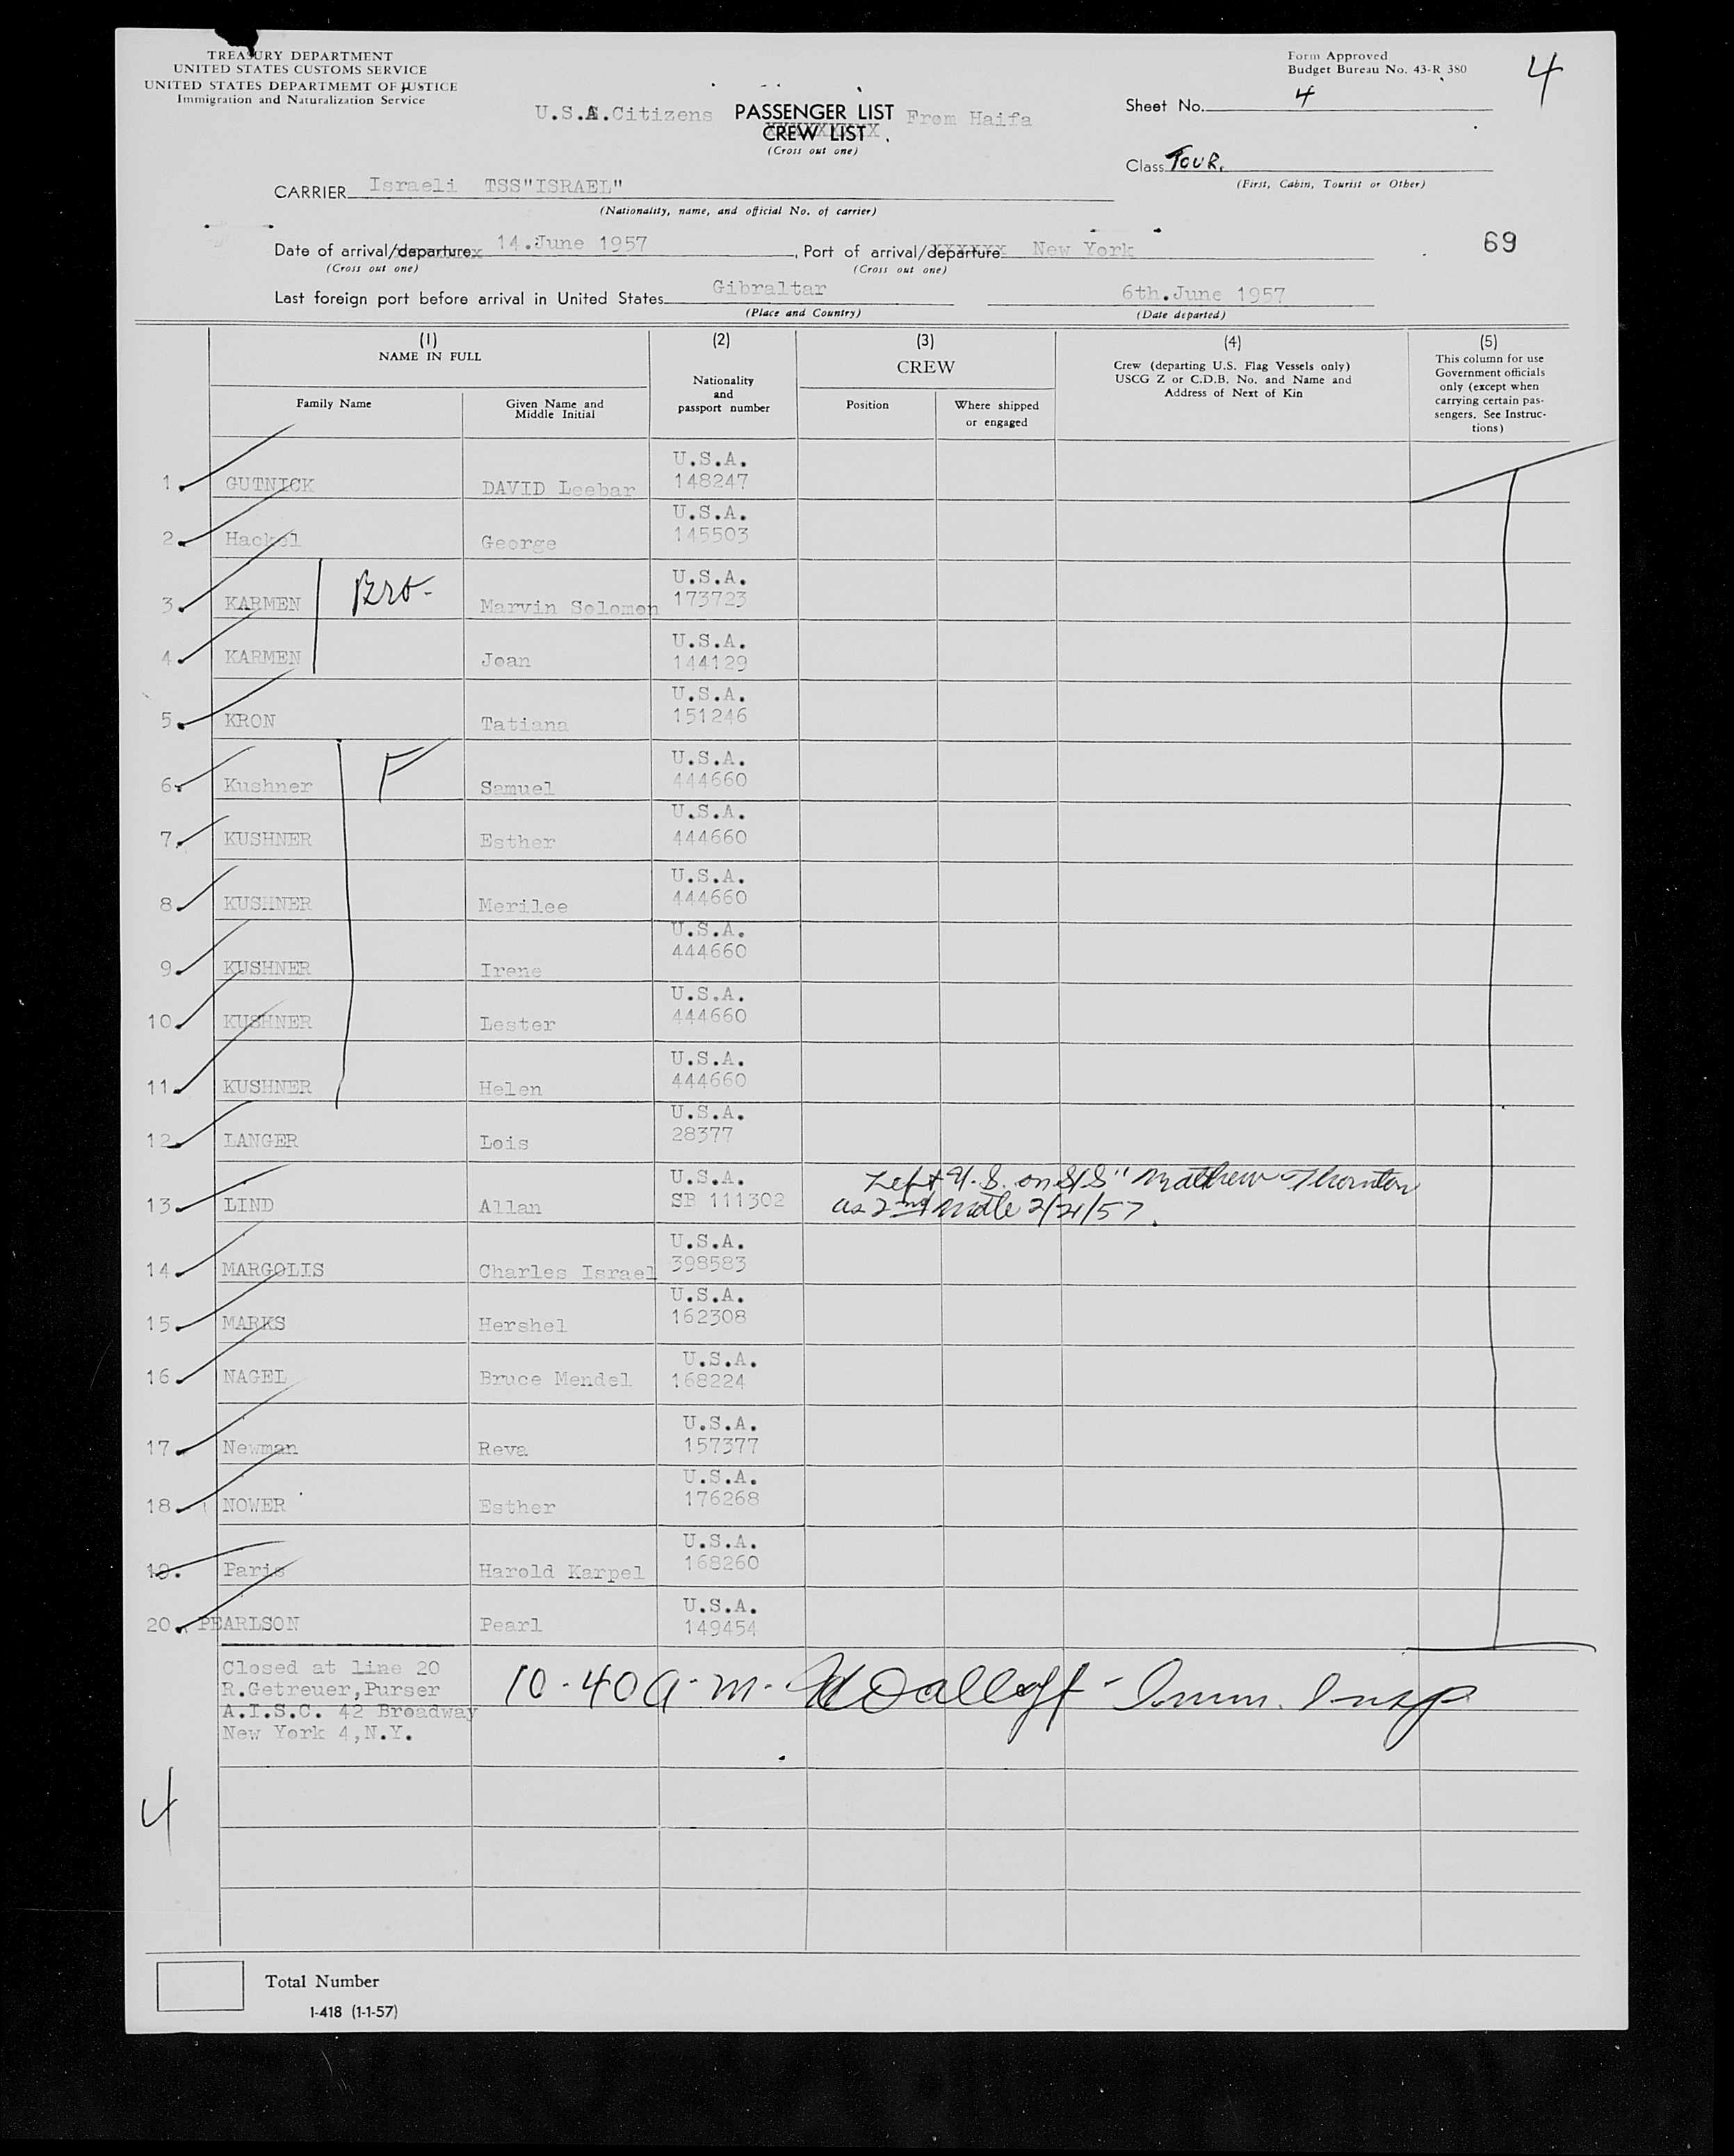 TREASURY DEPARTMENT
UNITED STATES CUSTOMS SERVICE
UNITED STATES DEPARTMEMT OF JUSTICE
Immigration and Naturalization Service
Form Approved
Budget Bureau No. 43-R 380
4
U.S.A.Citizens PASSENGER LIST From Haifa
CREW LIST
(Cross out one)
Sheet No. 4
Class Tour.
(First, Cabin, Tourist or Other)
CARRIER Israeli TSS"ISRAEL"
(Nationality, name, and official No. of carrier)
Date of arrival/departure 14.June 1957, Port of arrival/departure New York
(Cross out one) (Cross out one)
69
Last foreign port before arrival in United States Gibraltar 6th.June 1957
(Place and Country) (Date departed)
(1) (2) (3) (4) (5)
NAME IN FULL
Family Name
Given Name and Middle Initial
Nationality and passport number
CREW
Position
Where shipped or engaged
Crew (departing U.S. Flag Vessels only)
USCG Z or C.D.B. No. and Name and
Address of Next of Kin
This column for use
Government officials
only (except when
carrying certain pas-
sengers. See Instruc-
tions)
1. GUTNICK DAVID Leebar U.S.A. 148247
2. Hackel George U.S.A. 145503
3. KARMEN Bro- Marvin Solomon U.S.A. 173723
4. KARMEN Joan U.S.A. 144129
5. KRON Tatiana U.S.A. 151246
6. Kushner F Samuel U.S.A. 444660
7. KUSHNER Esther U.S.A. 444660
8. KUSHNER Merilee U.S.A. 444660
9. KUSHNER Irene U.S.A. 444660
10. KUSHNER Lester U.S.A. 444660
11. KUSHNER Helen U.S.A. 444660
12. LANGER Lois U.S.A. 28377
13. LIND Allan U.S.A. SB 111302 Left U.S. on S/S "Matthew Thornton
as 2nd Mate 2/21/57.
14. MARGOLIS Charles Israel U.S.A. 398583
15. MARKS Hershel U.S.A. 162308
16. NAGEL Bruce Mendel U.S.A. 168224
17. Newman Reva U.S.A. 157377
18. NOWER Esther U.S.A. 176268
19. Paris Harold Karpel U.S.A. 168260
20. PEARLSON Pearl U.S.A. 149454
Closed at line 20
R.Getreuer,Purser
A.I.S.C. 42 Broadway
New York 4,N.Y.
10-40 a.m. Imm. Insp
4
Total Number
I-418 (1-1-57)